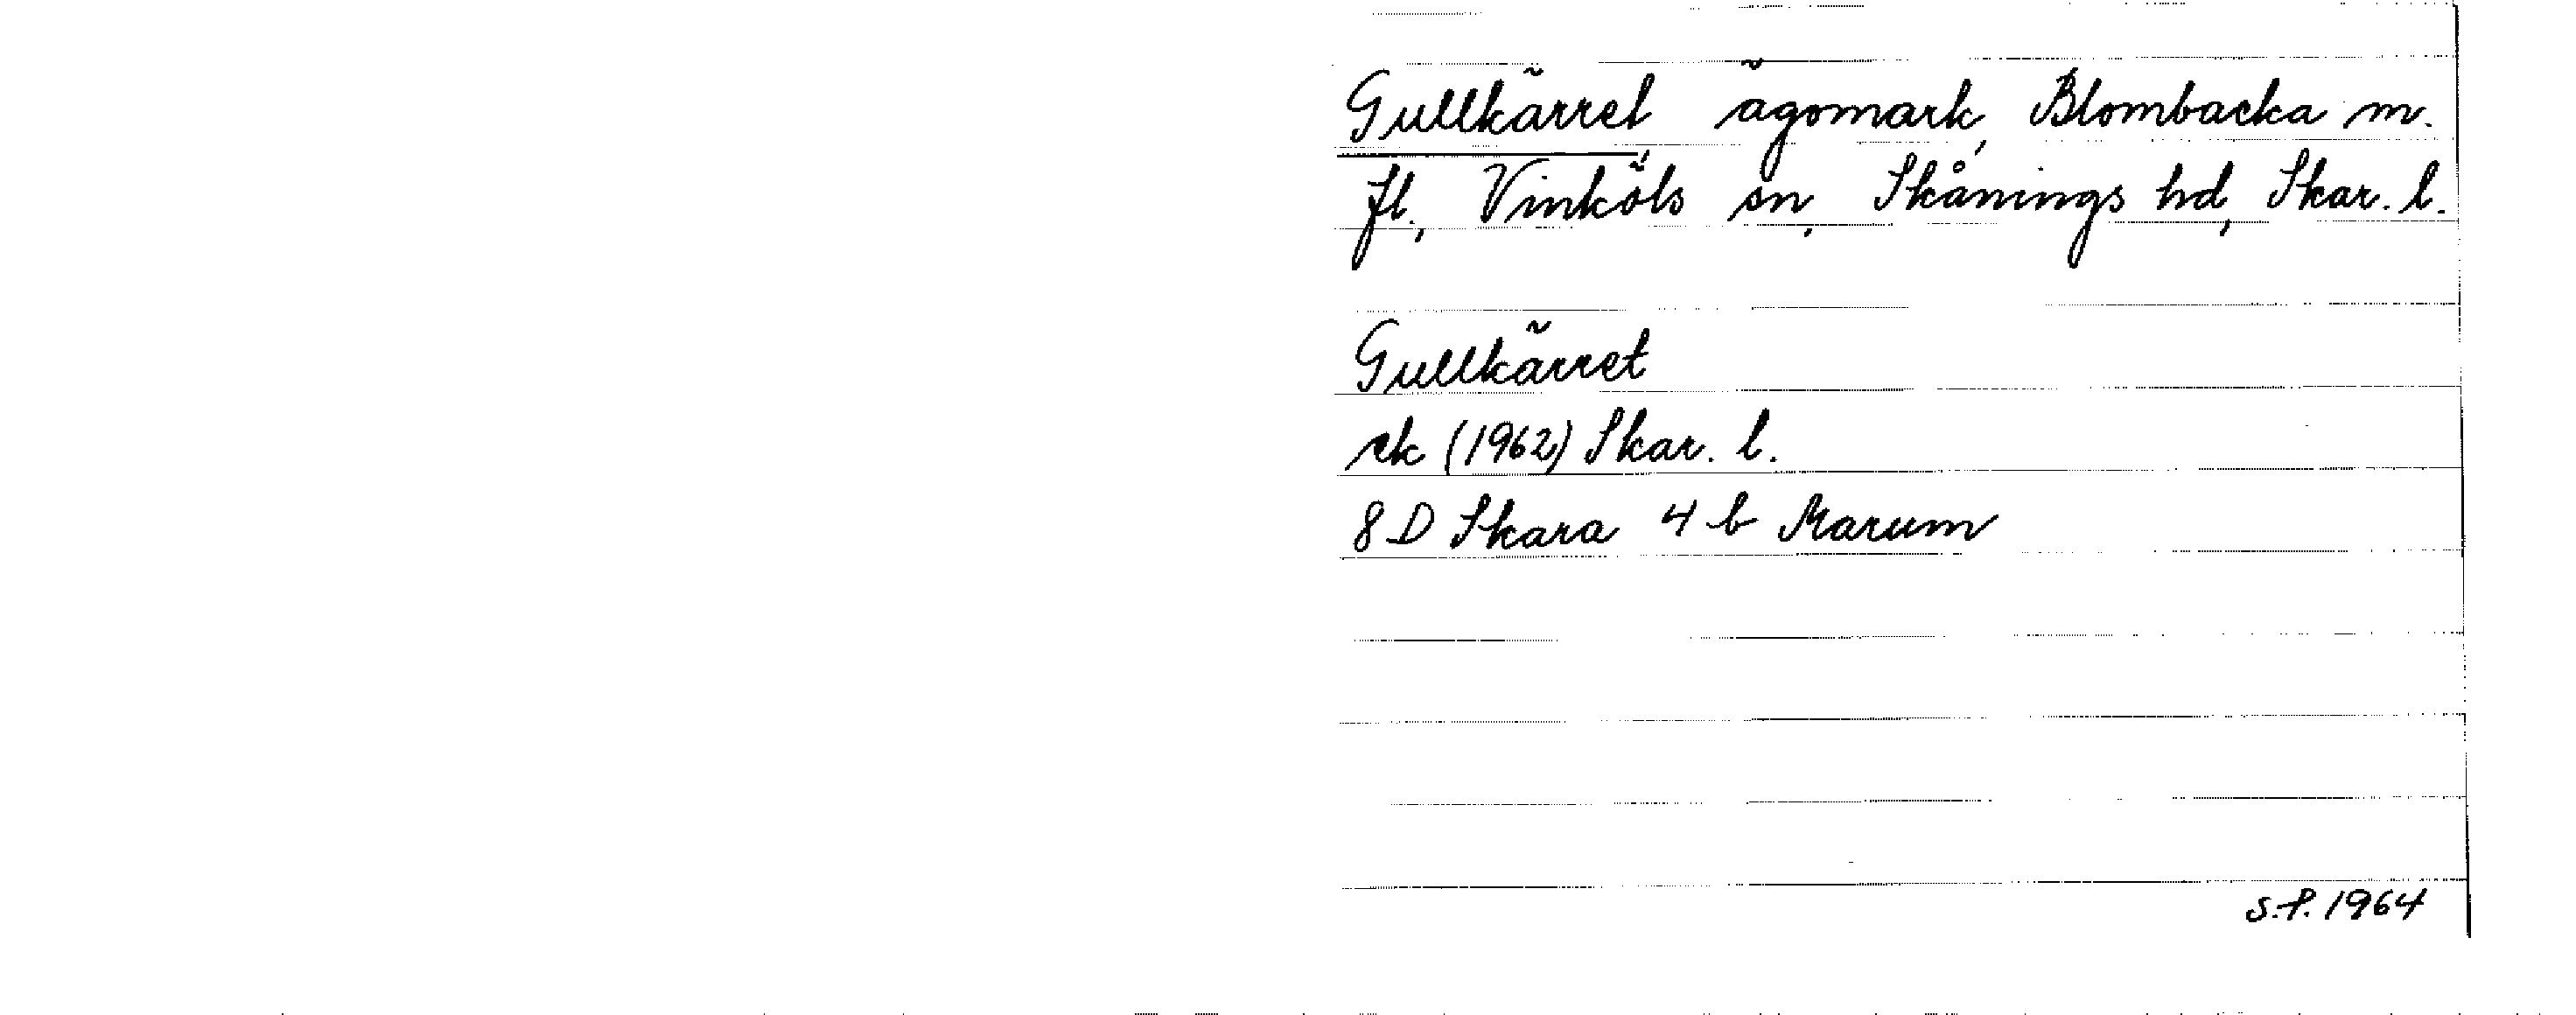 Gullkärret ägomark, Blombacka m.
fl., Vinköls sn, Skånings hd, Skar. l.
Gullkärret
ek (1962) Skar. l.
8 D Skara 4 b Marum
S.P. 1964